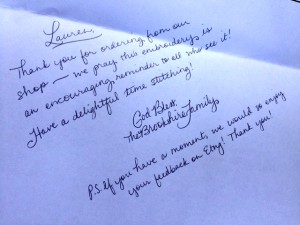 Lauren,
Thank you for ordering from our
shop — we pray this embroidery is
an encouraging reminder to all who see it!
Have a delightful time stitching!
God Bless,
The Brookshire Family
P.S. If you have a moment, we would so enjoy
your feedback on Etsy! Thank you!